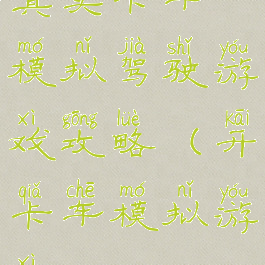 真实卡车
mó nǐ jià shǐ yóu
模拟驾驶游
xì gōng lüè kāi
戏攻略（开
qiǎ chē mó nǐ yóu
卡车模拟游
xì